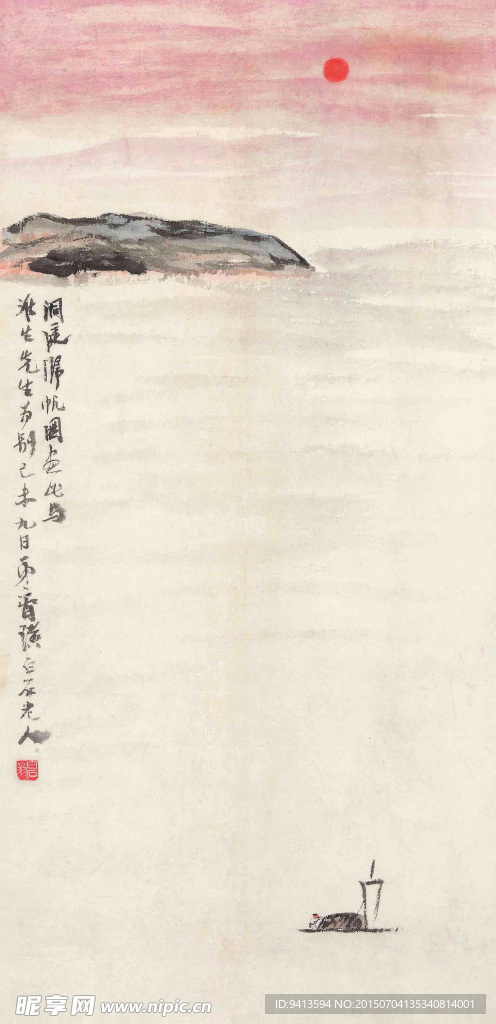 洞庭歸帆圖画此与
先生为别己未九日璜白石老人
昵享网 www.nipic.cn
ID:9413594 NO:20150704135340814001